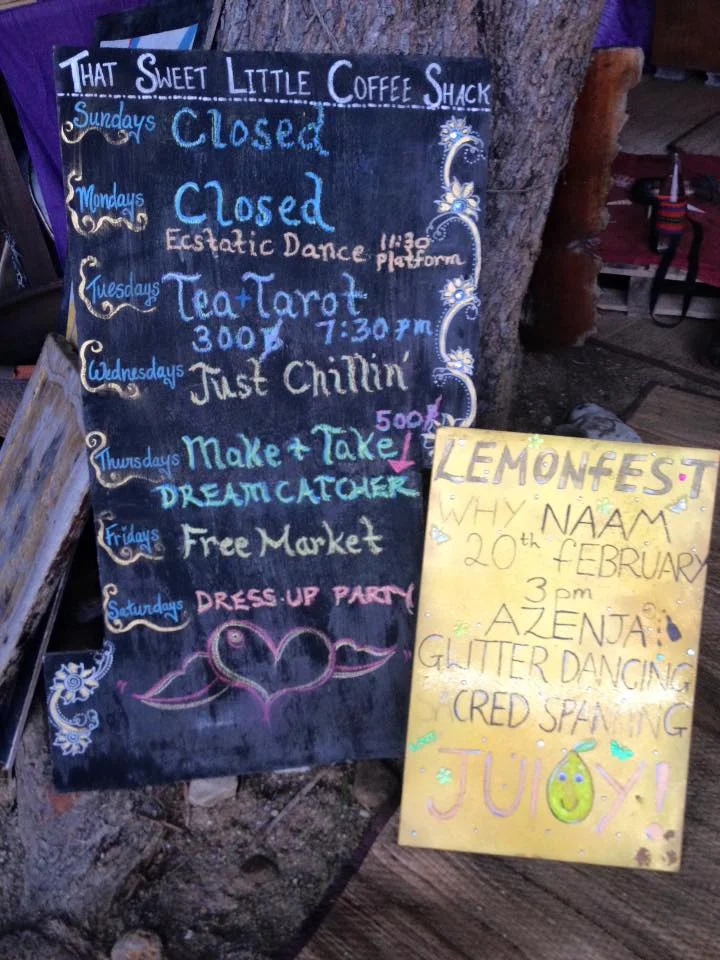 THAT SWEET LITTLE COFFEE SHACK
Sundays Closed
Mondays Closed
Ecstatic Dance 11:30 Platform
Tuesdays Tea + Tarot
300฿ 7:30 pm
Wednesdays Just Chillin'
500฿
Thursdays Make + Take
DREAMCATCHER
Fridays Free Market
Saturdays DRESS-UP PARTY
LEMONfEST
WHY NAAM
20th fEBRUARY
3pm
AZENJA
GLITTER DANCING
SACRED SPANKING
JUICY!